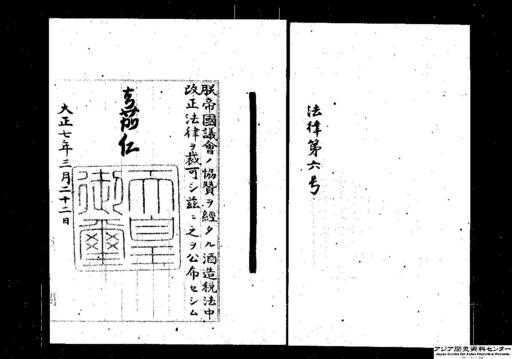 法律第六号
朕帝國議會ノ協贊ヲ經タル酒造税法中
改正法律ヲ裁可シ茲ニ之ヲ公布セシム
嘉仁
天皇
御璽
大正七年三月二十二日
アジア歴史資料センター
Japan Center for Asian Historical Records